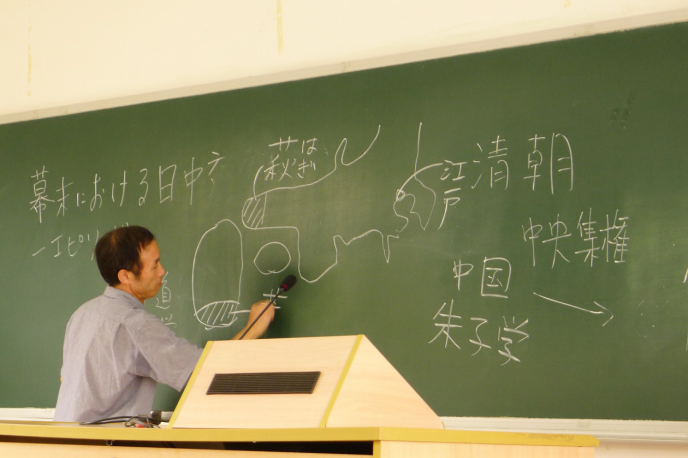 幕末における日中
一エピソ
萩はぎ
江戸
清朝
中央集権
中国
朱子学
道